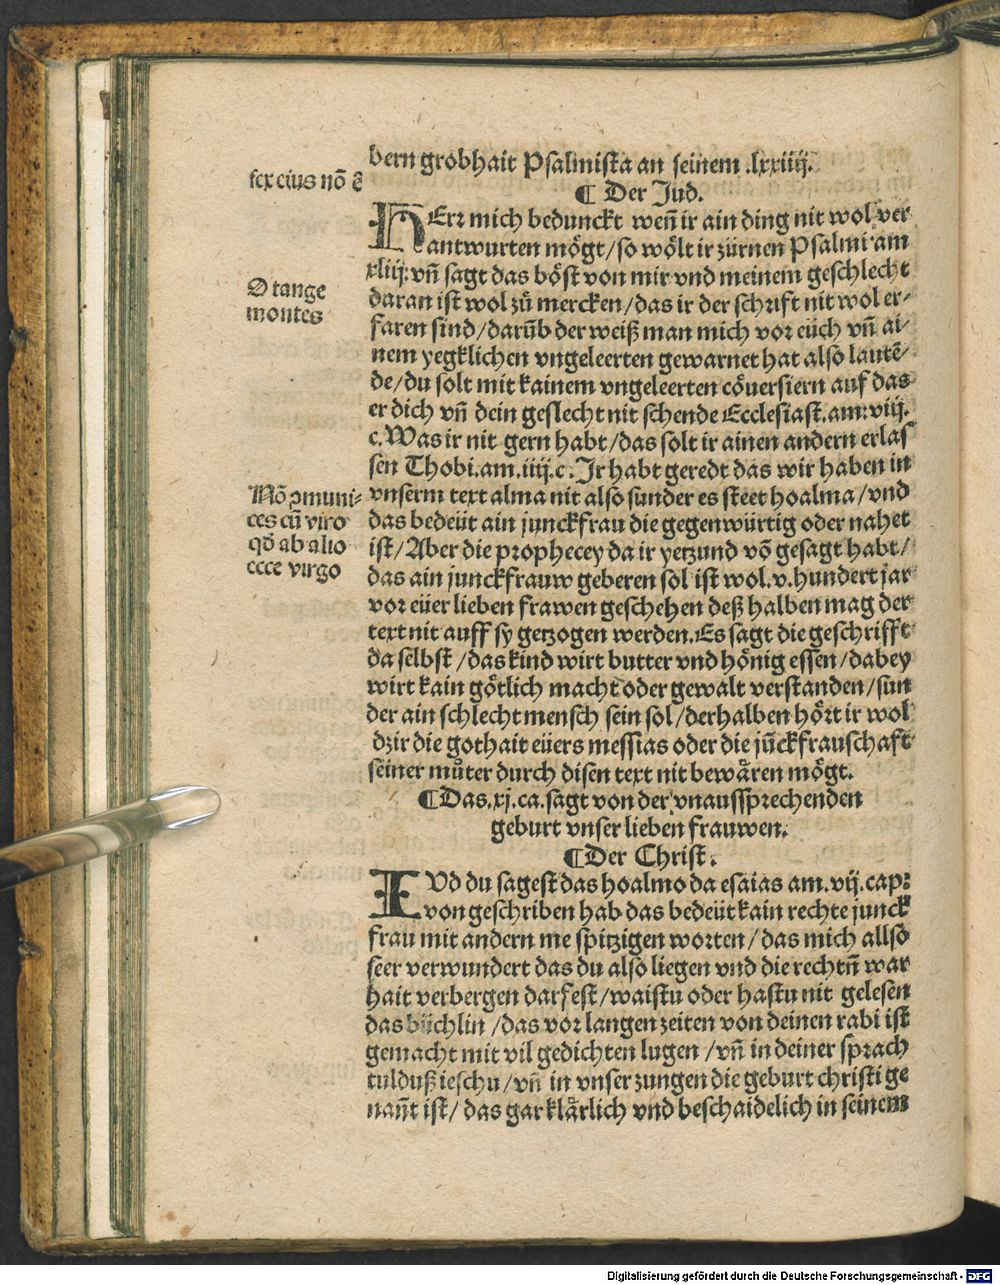 bern grobhait Psalmista an seinem .lxxiiij.
fex eius nō ē
¶ Der Jud.
HErr mich bedunckt wen̄ ir ain ding nit wol ver
antwurten mögt/so wölt ir zürnen Psalmi am
xliij. vn̄ sagt das böst von mir vnd meinem geschlecht
daran ist wol zů mercken/das ir der schrift nit wol er/
faren sind/darūb der weiß man mich vor eüch vn̄ ai/
nem yegklichen vngeleerten gewarnet hat also lautē/
de/du solt mit kainem vngeleerten cōuersiern auf das
er dich vn̄ dein geslecht nit schende Ecclesiast.am:viij.
c.Was ir nit gern habt/das solt ir ainen andern erlas
sen Thobi.am.iiij.c. Jr habt geredt das wir haben in
vnserm text alma nit also sunder es steet hoalma/vnd
das bedeüt ain junckfrau die gegenwürtig oder nahet
ist/Aber die prophecey da ir yetzund vō gesagt habt/
das ain junckfrauw geberen sol ist wol.v.hundert jar
vor eüer lieben frawen geschehen deß halben mag der
text nit auff sy getzogen werden.Es sagt die geschrifft
da selbst /das kind wirt butter vnd hönig essen/dabey
wirt kain götlich macht oder gewalt verstanden/sun
der ain schlecht mensch sein sol/derhalben hört ir wol
dz ir die gothait eüers messias oder die jūckfrauschaft
seiner můter durch disen text nit bewären mögt.
O tange
montes
Nō ꝯmuni-
ces cū viro
qd̄ ab alio
ecce virgo
¶Das.xj.ca.sagt von der vnaussprechenden
geburt vnser lieben frauwen.
¶Der Christ.
JVd du sagest das hoalmo da esaias am.vij.cap:
von geschriben hab das bedeüt kain rechte junck
frau mit andern me spitzigen worten/das mich allso
seer verwundert das du also liegen vnd die rechtn̄ war
hait verbergen darfest/waistu oder hastu nit gelesen
das büchlin /das vor langen zeiten von deinen rabi ist
gemacht mit vil gedichten lugen /vn̄ in deiner sprach
tulduß ieschu/vn̄ in vnser zungen die geburt christi ge
nan̄t ist/ das gar klärlich vnd beschaidelich in seinem
Digitalisierung gefördert durch die Deutsche Forschungsgemeinschaft - DFG